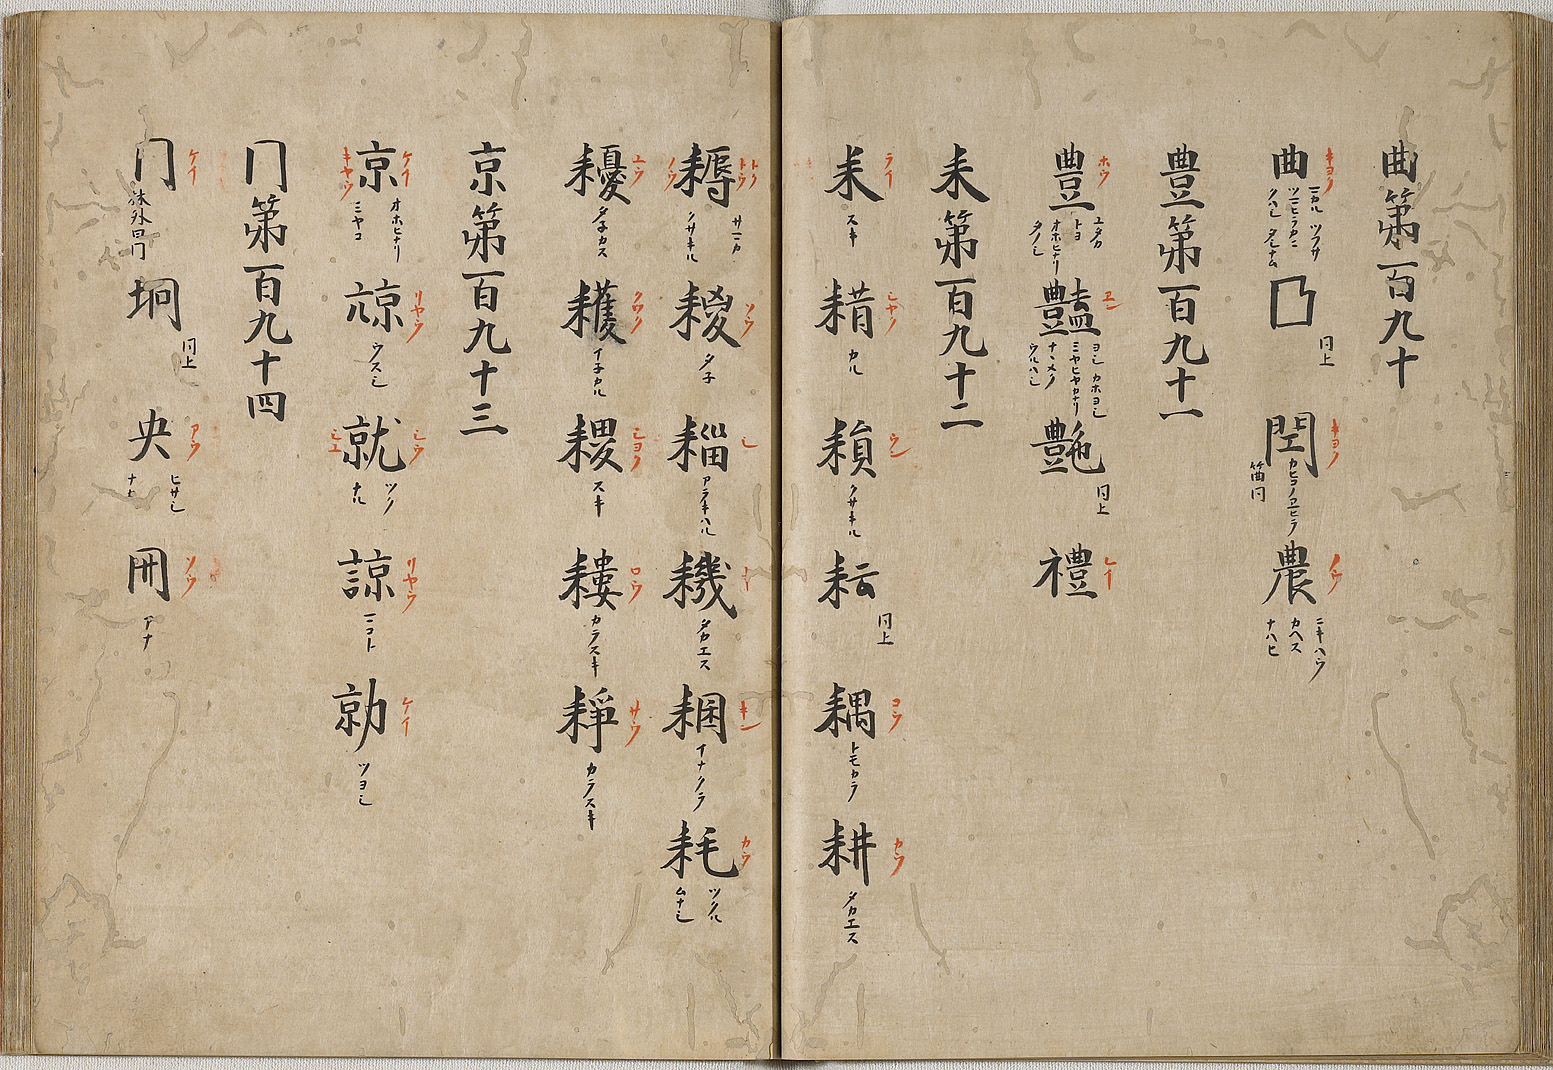 曲第百九十
曲 キヨク マカル ツフサ ツマヒラカニ クハシ
𠙴 同上
閠 キヨク 笛同
農 ノウ ニキハウ カヘス ナハヒ
豊第百九十一
豊 ホウ ユタカ トヨ オホヒナリ タノシ
豔 エン ヨシ カホヨシ ミヤヒヤカナリ ナマメク ウルハシ
艶 同上
禮 レイ
耒第百九十二
耒 ライ スキ
耤 シヤク カル
耴 ウン クサキル
耘 同上
耦 コウ トモカラ
耕 カウ タカエス
耨 トク トウ ノウ クサキル
稯 ソウ タ子
緇 シ アラキハル
耭 キ タカエス
稇 キン イナクラ
耗 カウ ツクル ムナシ
耰 ユウ タ子カス
穫 クワク イ子カル
稷 シヨク スキ
耬 ロウ カラスキ
耕 サウ カラスキ
京第百九十三
京 ケイ キヤウ オホヒナリ ミヤコ
椋 リヤウ ウスシ
就 シウ シユ ツク ナル
諒 リヤウ マコト
勍 ケイ ツヨシ
冂第百九十四
冂 ケイ
坰 同上
央 アウ ヒサシ ナカ
冊 ソウ アナ